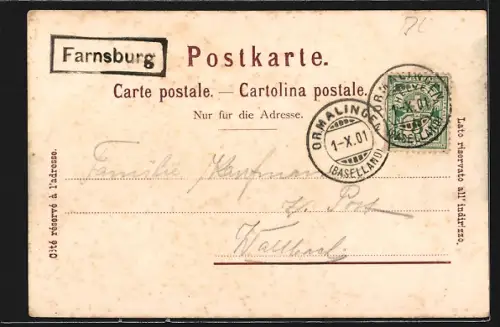 Farnsburg
Postkarte.
Carte postale. — Cartolina postale.
Nur für die Adresse.
ORMALINGEN
1-X.01
(BASELLAND)
ORMALINGEN
1-X.01
(BASELLAND)
HELVETIA
Côté réservé à l'adresse.
Lato riservato all' indirizzo.
Familie Kaufmann
z. Post
Wallbach